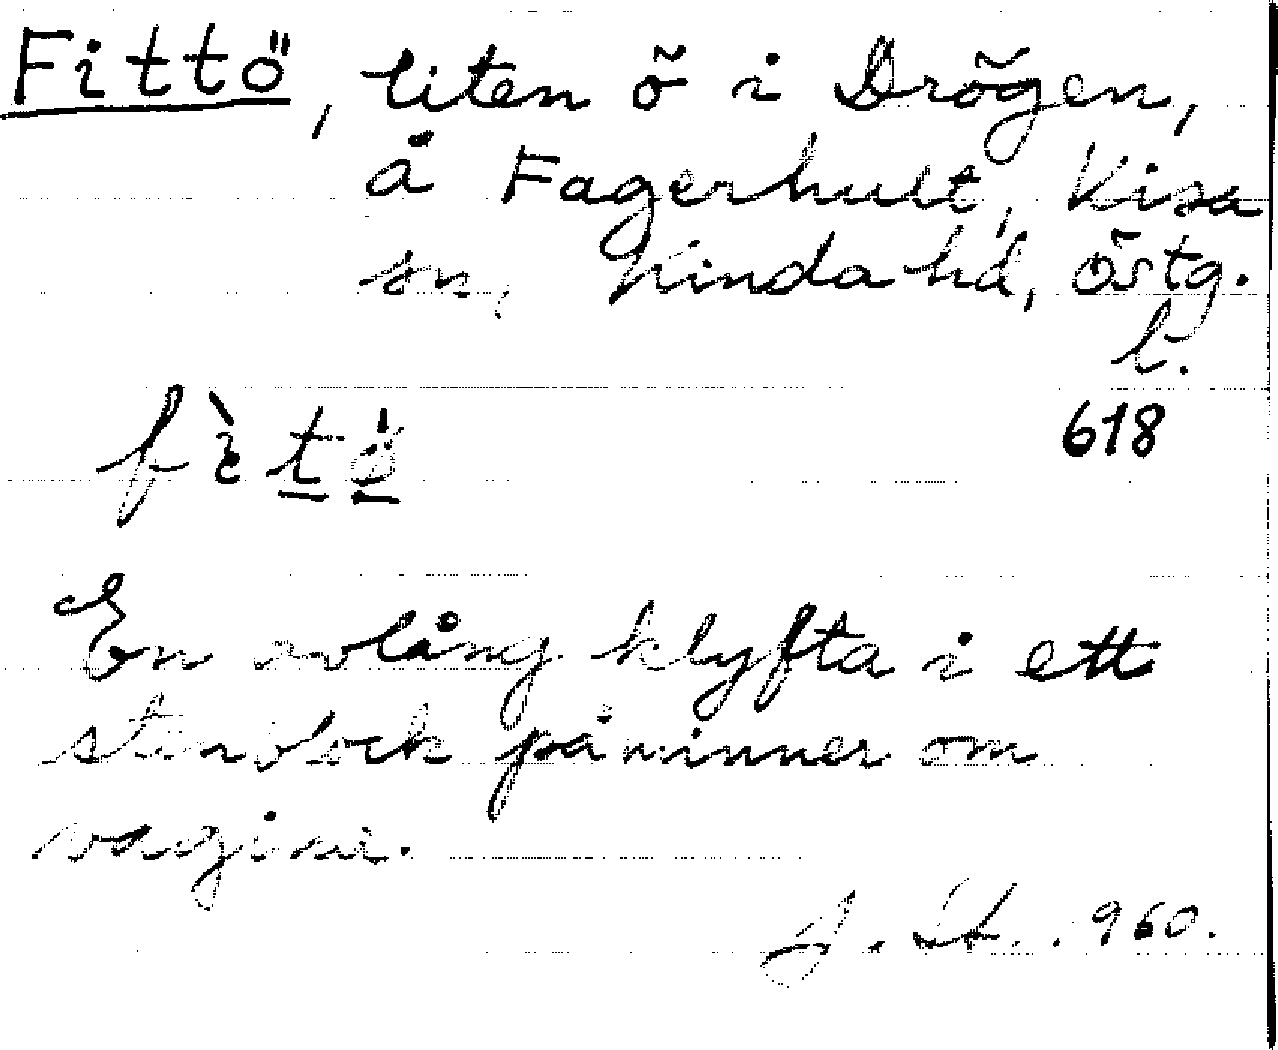 Fittö, liten ö i Drögen,
å Fagerhult, Kisa
sn, Kinda hd, Östg.
l.
618
fìtö
En avlång klyfta i ett
stenblock påminner om
vagina.
960.